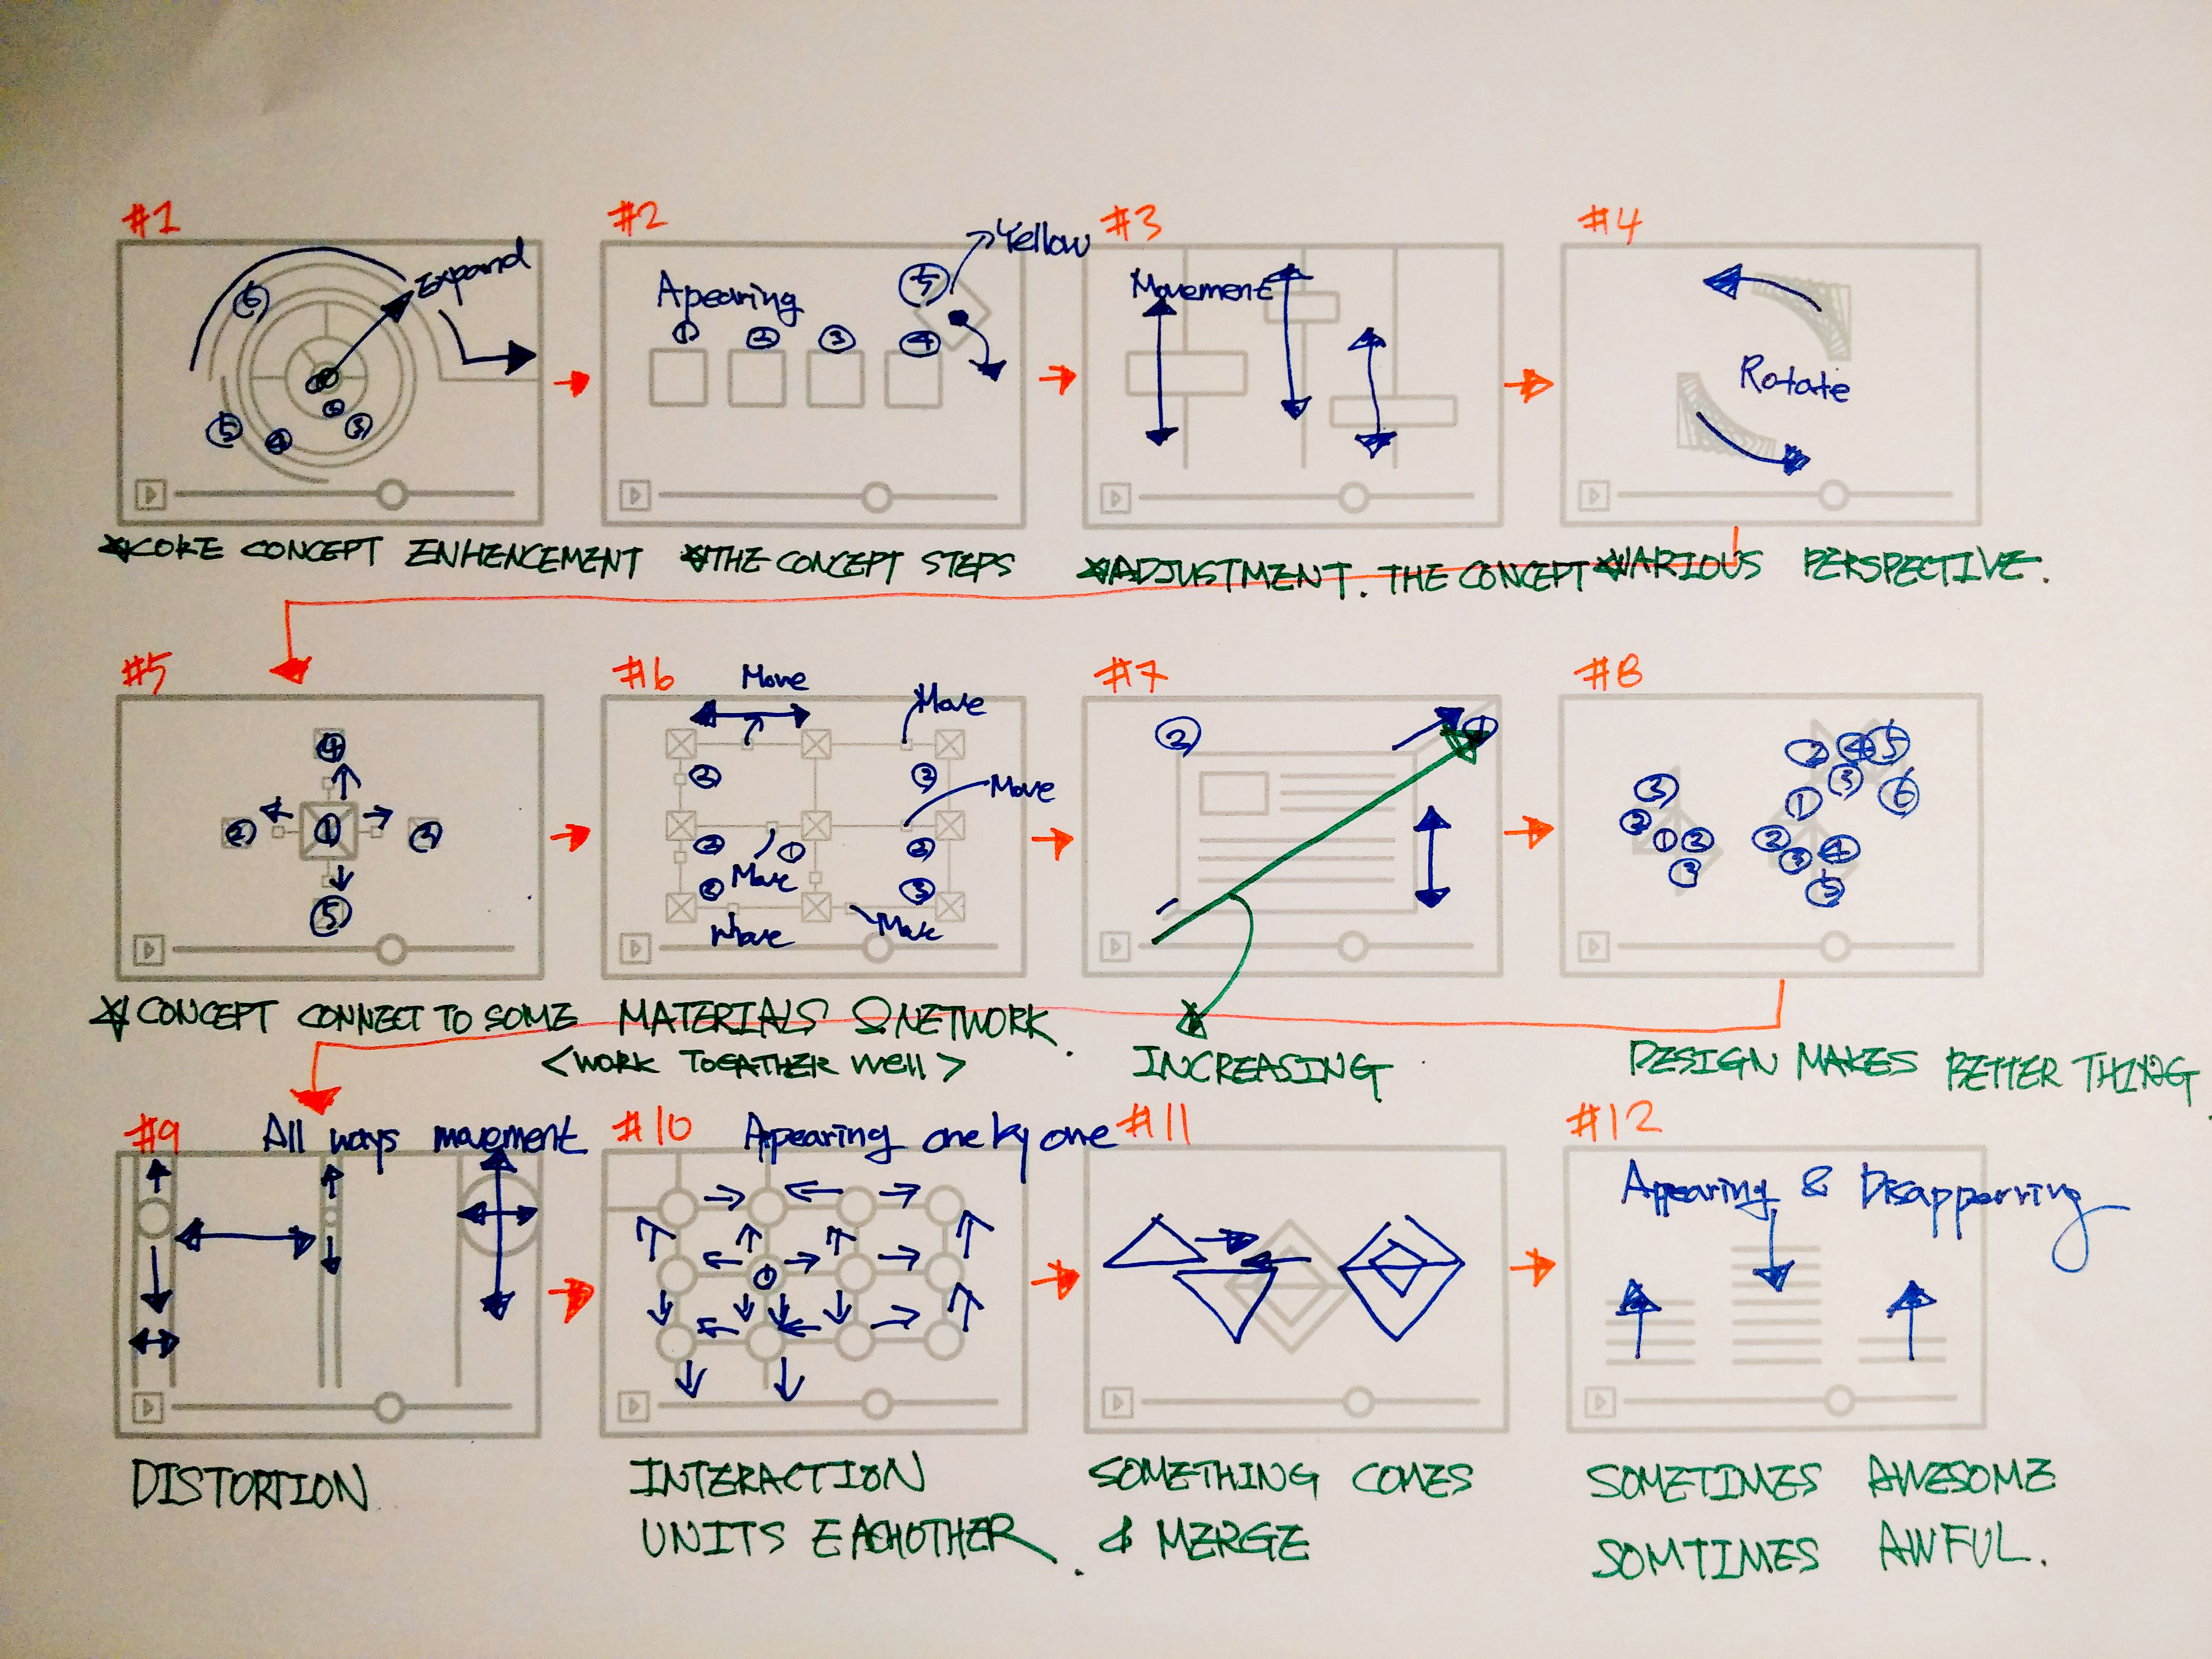 #1
Expand
6
5
4
3
#2
Apearing
Yellow
5
1
2
3
4
#3
Movement
#4
Rotate
CORE CONCEPT ENHENCEMENT
THE CONCEPT STEPS
ADJUSTMENT. THE CONCEPT
VARIOUS PERSPECTIVE.
#5
4
2
1
5
#6
Move
Move
2
3
Move
2
1
3
2
Move
3
Move
Move
#7
2
1
#8
3
2
1
2
3
2
4
5
3
6
1
2
3
4
5
CONCEPT CONNECT TO SOME MATERIALS & NETWORK.
<WORK TOGATHER WELL>
INCREASING
DESIGN MAKES BETTER THING.
#9
All ways movement
#10
Apearing one by one
1
#11
#12
Appearing & Disapperring
DISTORTION
INTERACTION
UNITS EACHOTHER.
SOMETHING COMES
& MERGE
SOMETIMES AWESOME
SOMTIMES AWFUL.